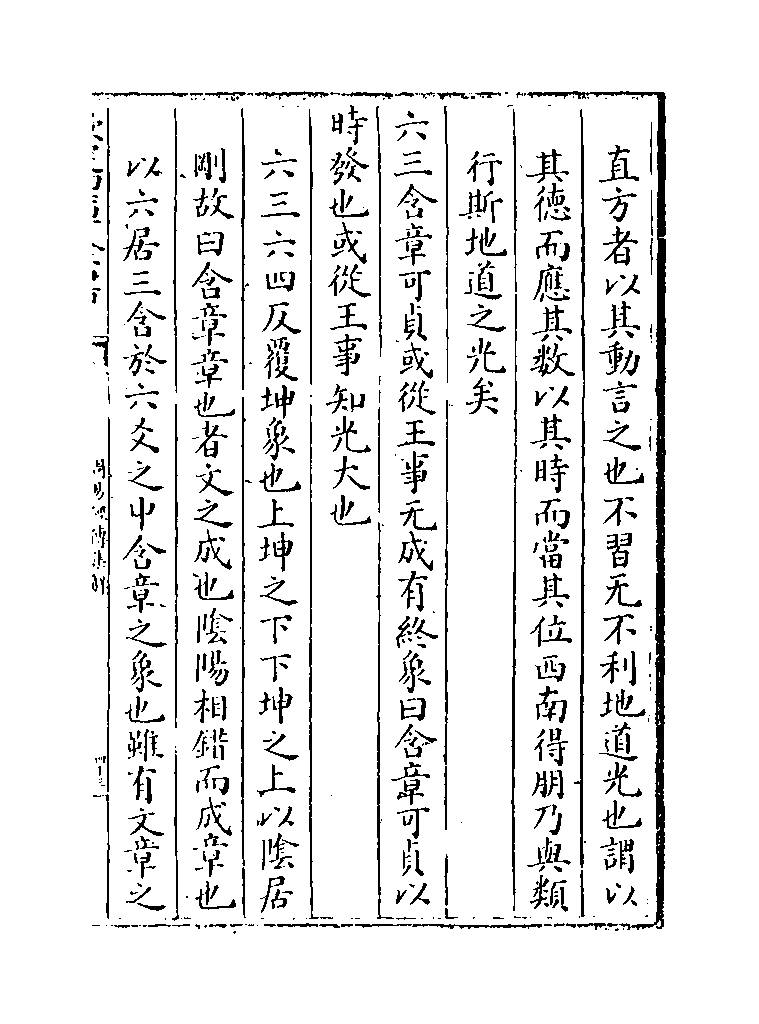 直方者以其動言之也不習无不利地道光也謂以
其德而應其数以其時而當其位西南得朋乃與類
行斯地道之光矣
六三含章可貞或從王事无成有終象曰含章可貞以
時發也或從王事知光大也
六三六四反覆坤象也上坤之下下坤之上以陰居
剛故曰含章章也者文之成也陰陽相錯而成章也
以六居三含於六爻之中含章之象也雖有文章之